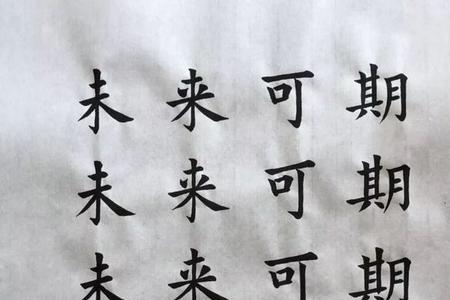 未来可期
未来可期
未来可期